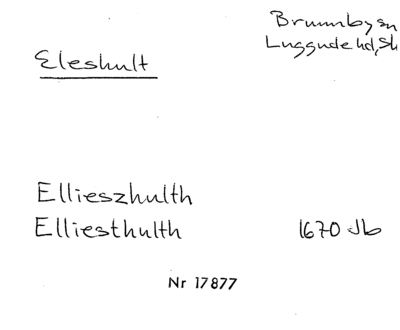 Brunnby sn
Eleshult
Luggude hd, Sk
Ellieszhulth
Elliesthulth 1670 Jb
Nr 17877